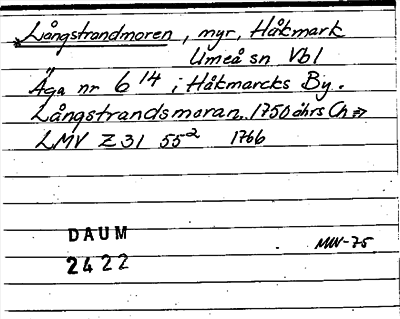 Långstrandmoren, myr, Håkmark
Umeå sn Vbl
Äga nr 6 14 i Håkmarcks By.
Långstrandsmoran.. 1750 åhrs Ch
LMV Z31 55² 1766
DAUM
2422
MW-75